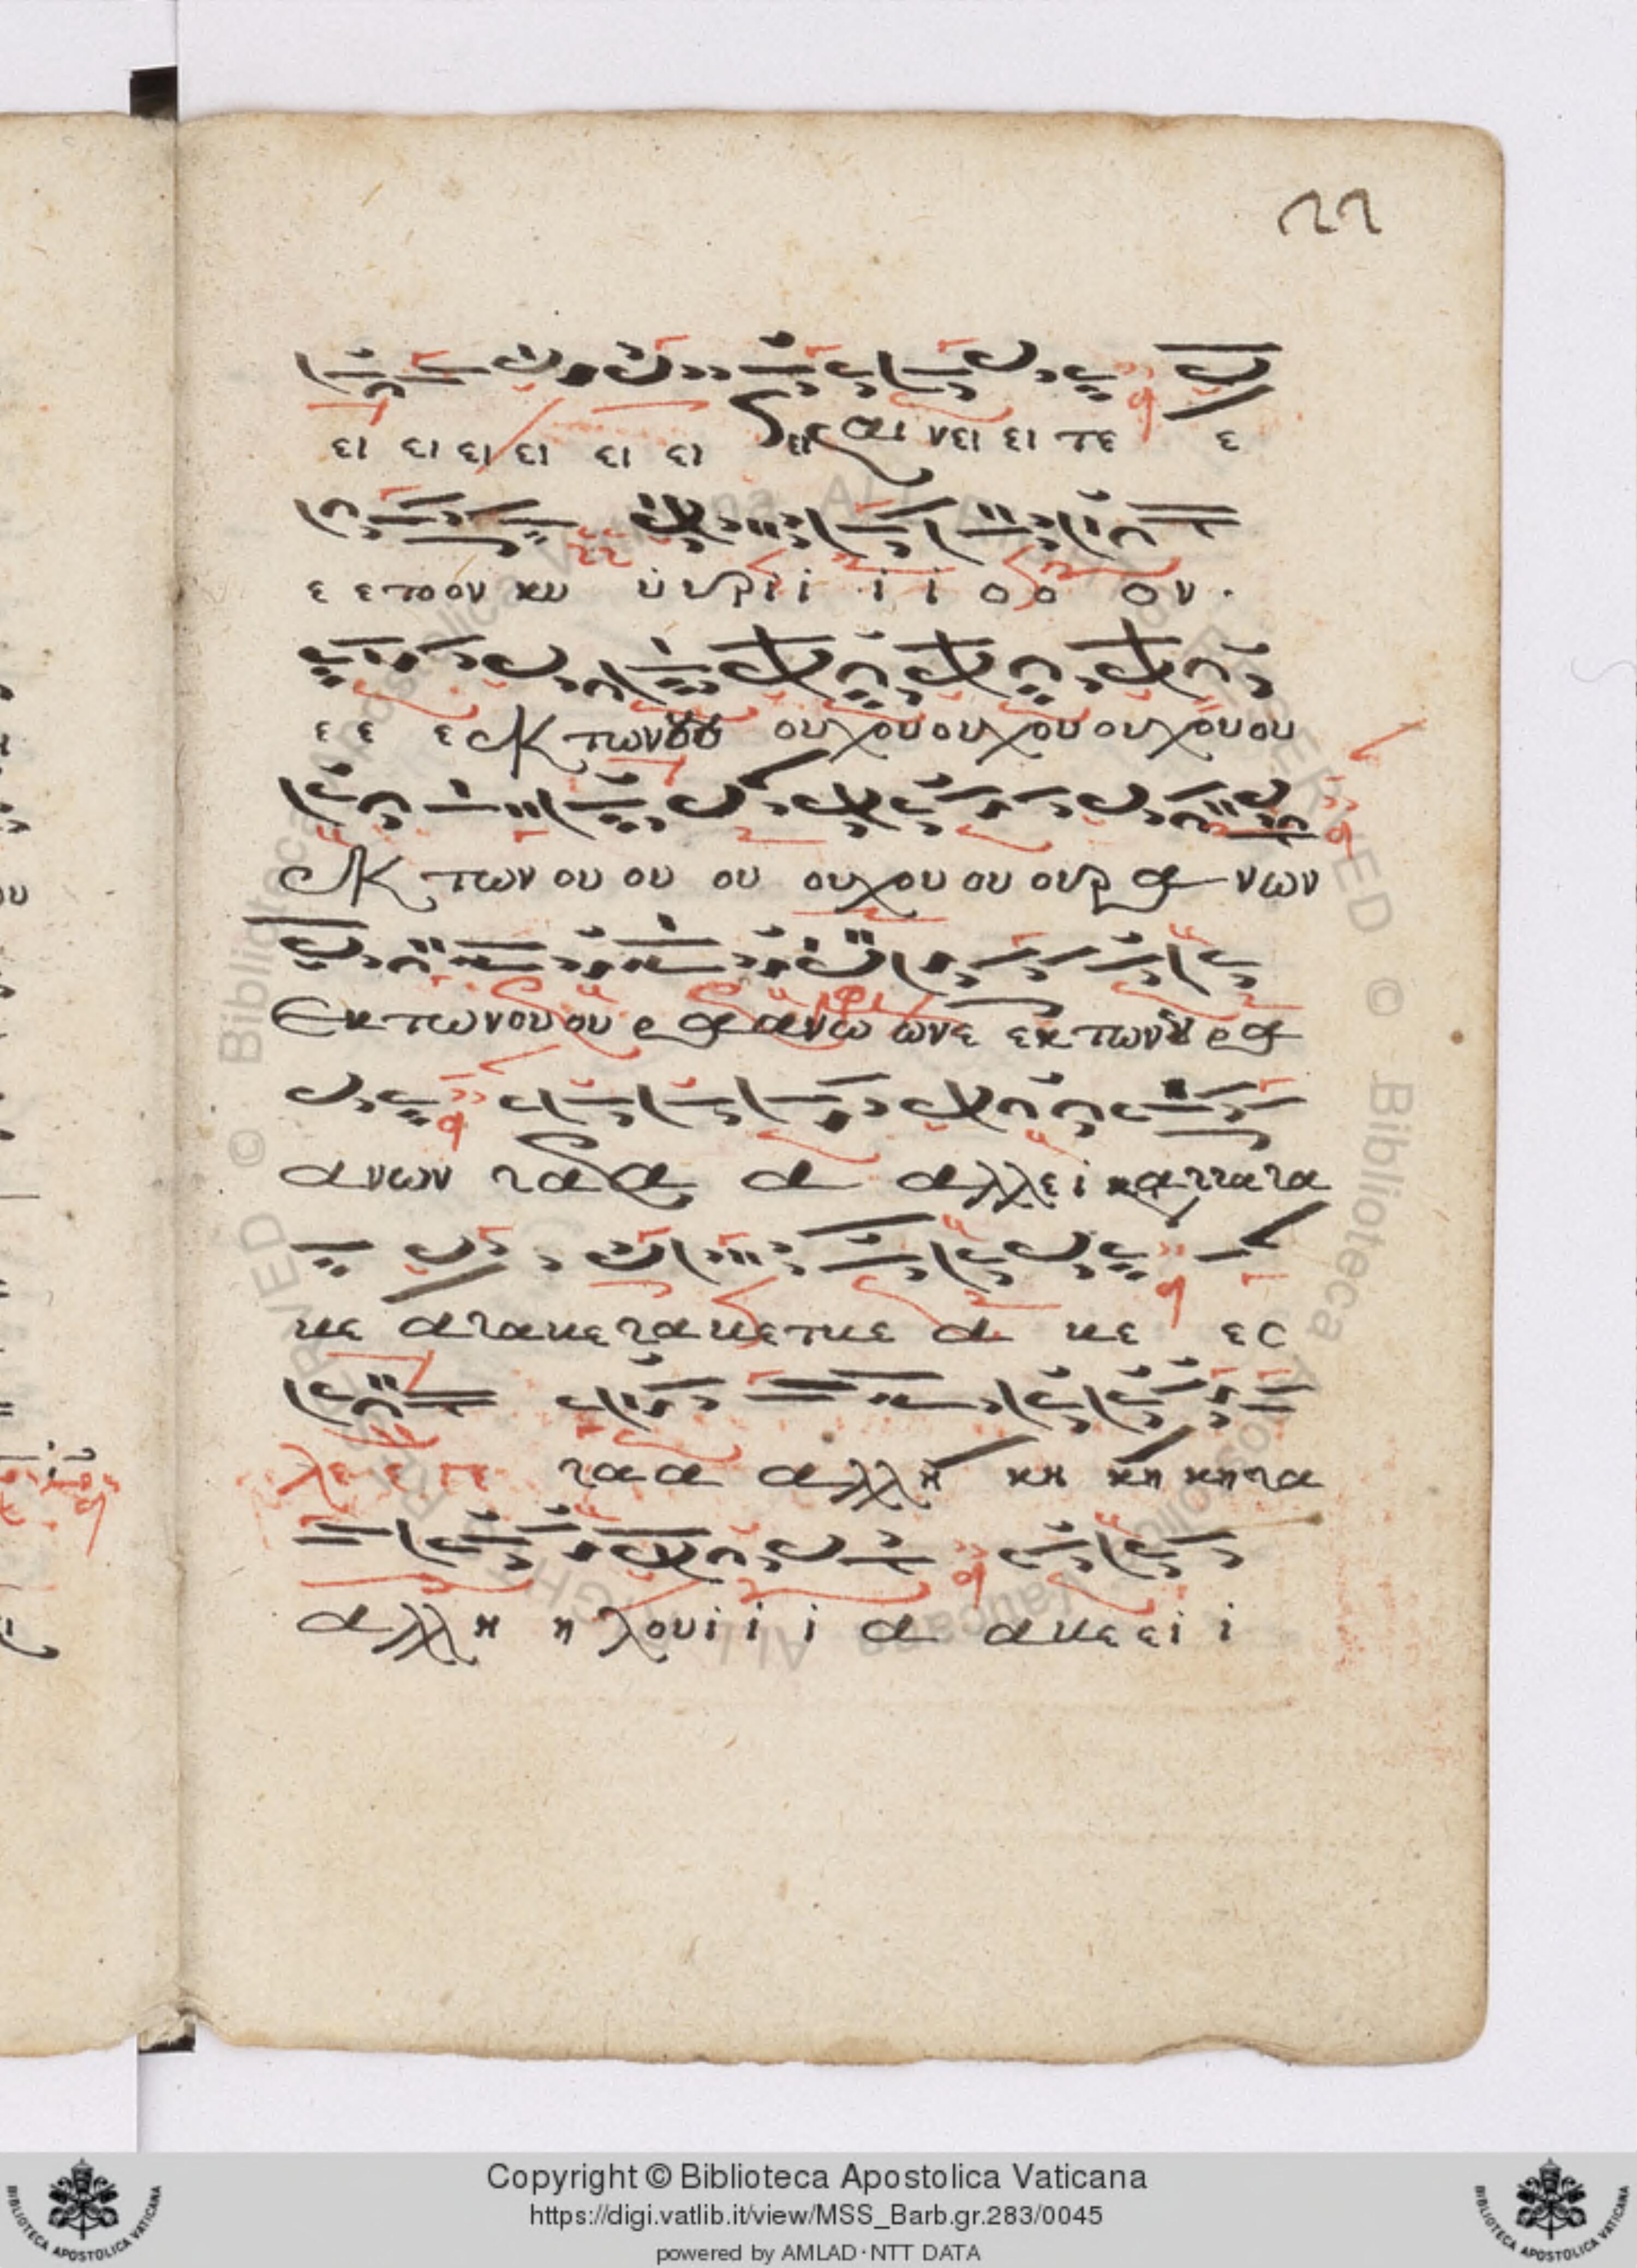 22
ει ει ει ει ει ει αι νει ει τε ε
ε ε το ον κυ υ υρι ι ι ι ο ο ον.
ε ε εκ των ου ου χου ου χου ου χου ου
εκ των ου ου ου ου χου ου ουρανων
Εκ των ου ου ρα ανω ωνε εκ των ου ρα
ανων α α αλλει
κε α κε α κε ες
λε ε γε α α αλλη κη κη κη
αλλη η λουι ι ι α α κε ει ι
Copyright © Biblioteca Apostolica Vaticana
https://digi.vatlib.it/view/MSS_Barb.gr.283/0045
powered by AMLAD·NTT DATA